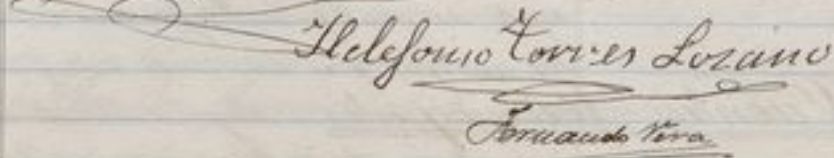 Ildefonso Torres Lozano
Fernando Vera